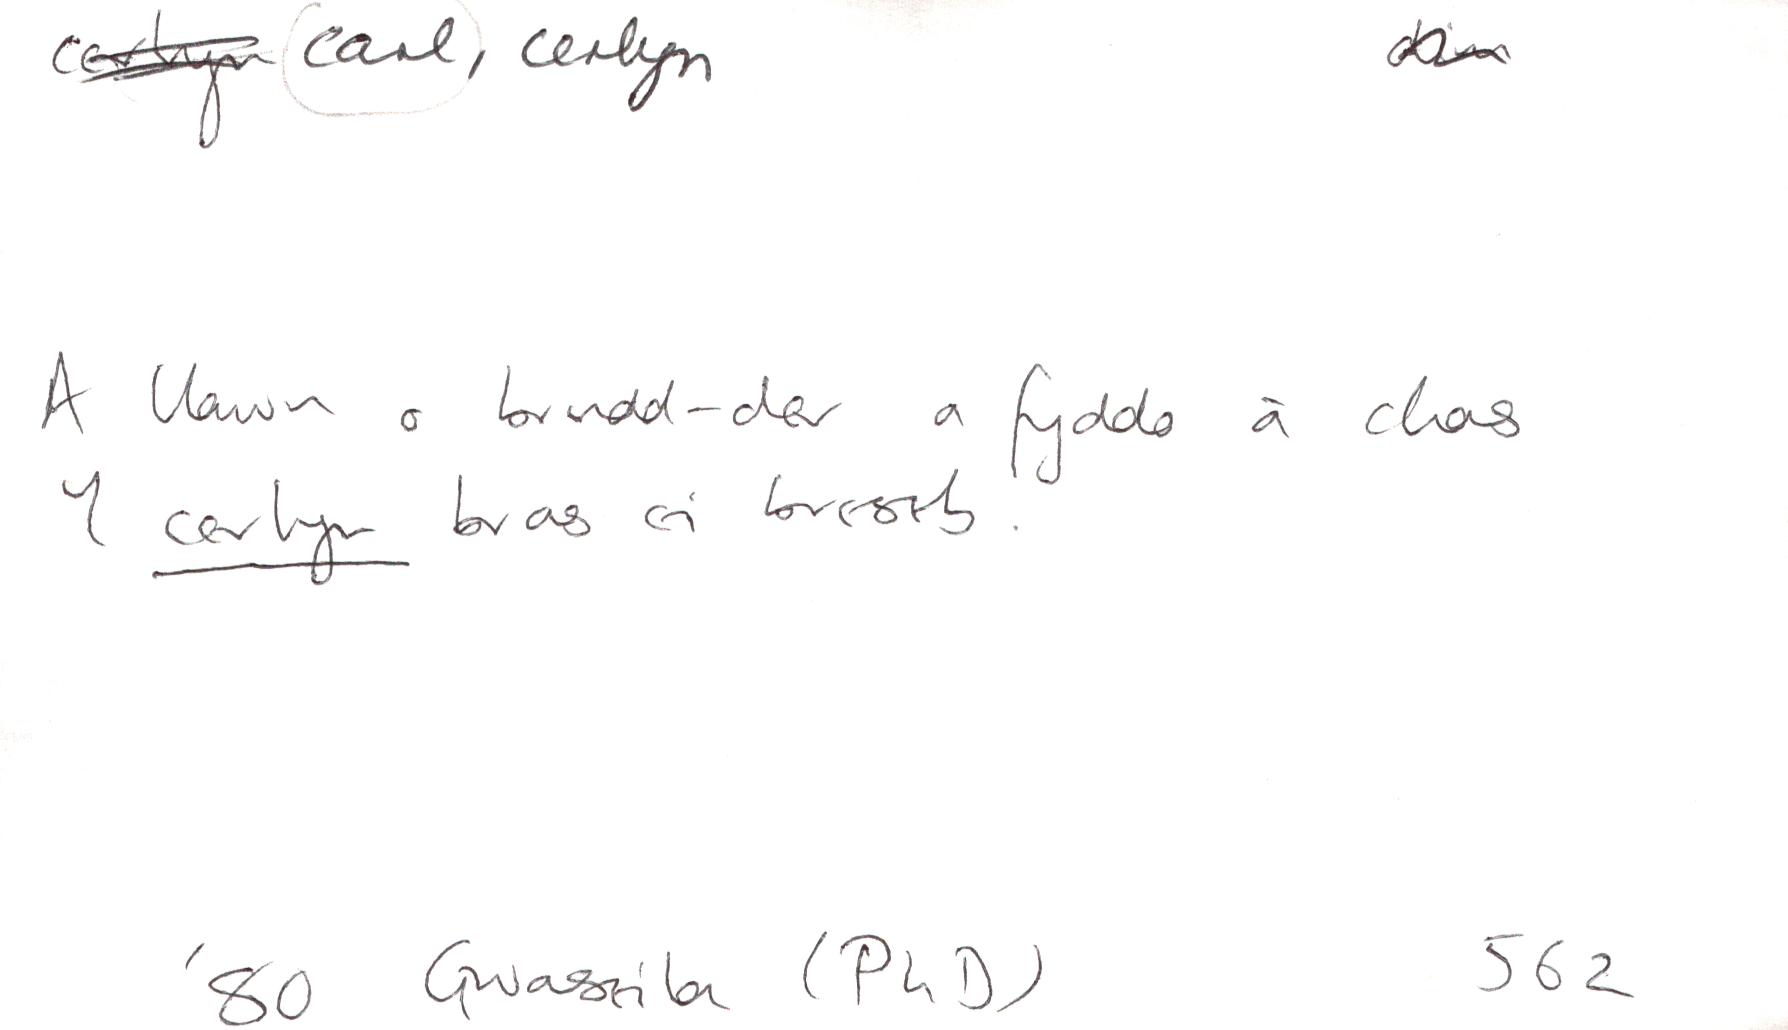 cerlyn carl, cerlyn
A llawn o brudd-der a fyddo â chas
Y cerlyn bras ei breseb.
'80 Gwaseila (PhD) 562